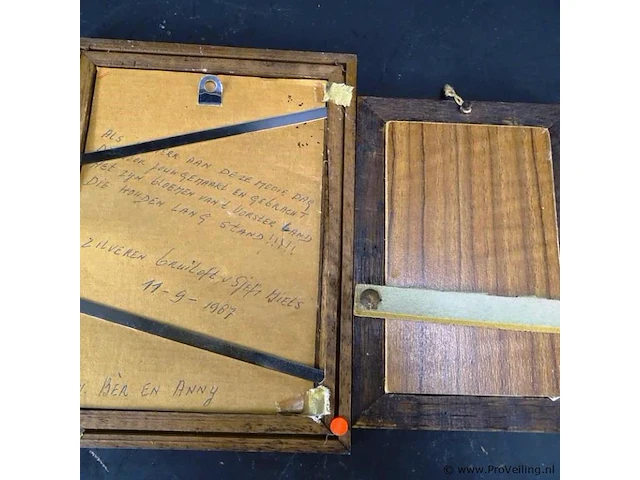 ALS
AAN DEZE MOOIE DAG
GEMAAKT EN GEBRACHT
HET ZIJN BLOEMEN VAN'T VORSTER LAND
DIE HOUDEN LANG STAND!!!!!
ZILVEREN bruiloft v Sjef
11-9-1987
BÈR EN ANNY
© www.ProVeiling.nl